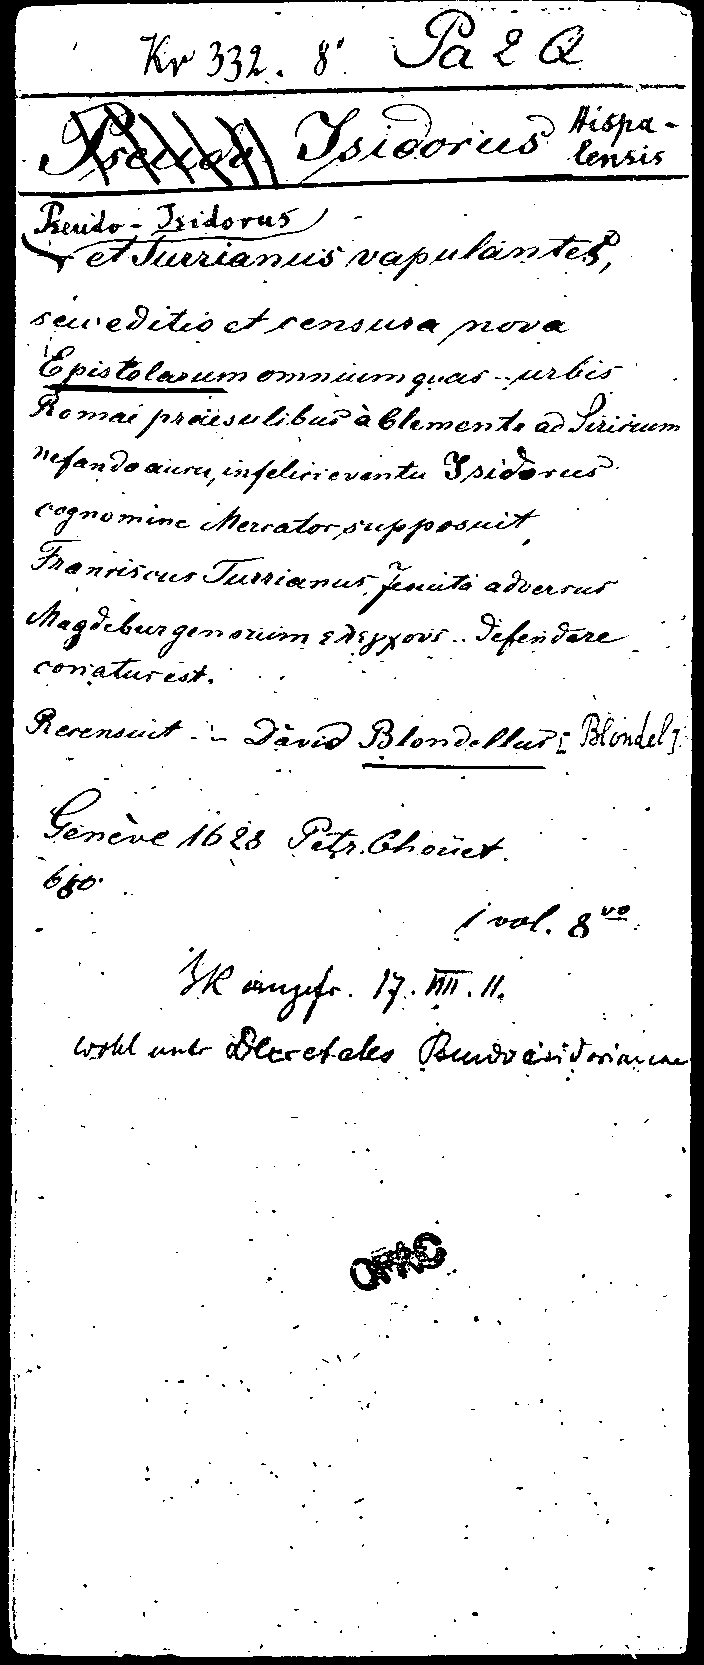 Kr 332. 8° Pa 2 Q
Pseudo Isidorus Hispa-
lensis
Pseudo-Isidorus
et Turrianus vapulantes,
seu editio et censura nova
Epistolarum omnium quas .. urbis
Romae praesulibus à Clemente ad Siricium
nefando ausu, infelici eventu Isidorus
cognomine Mercator supposuit,
Franciscus Turrianus Jesuita adversus
Magdeburgensium ελεγχους .. defendere
conatus est.
Recensuit .. David Blondellus [Blondel]
Genève 1628 Petr. Choüet.
1 vol. 8vo
ZK angefr. 17. VIII. 11.
wohl unter Decretales Pseudoisidorianae